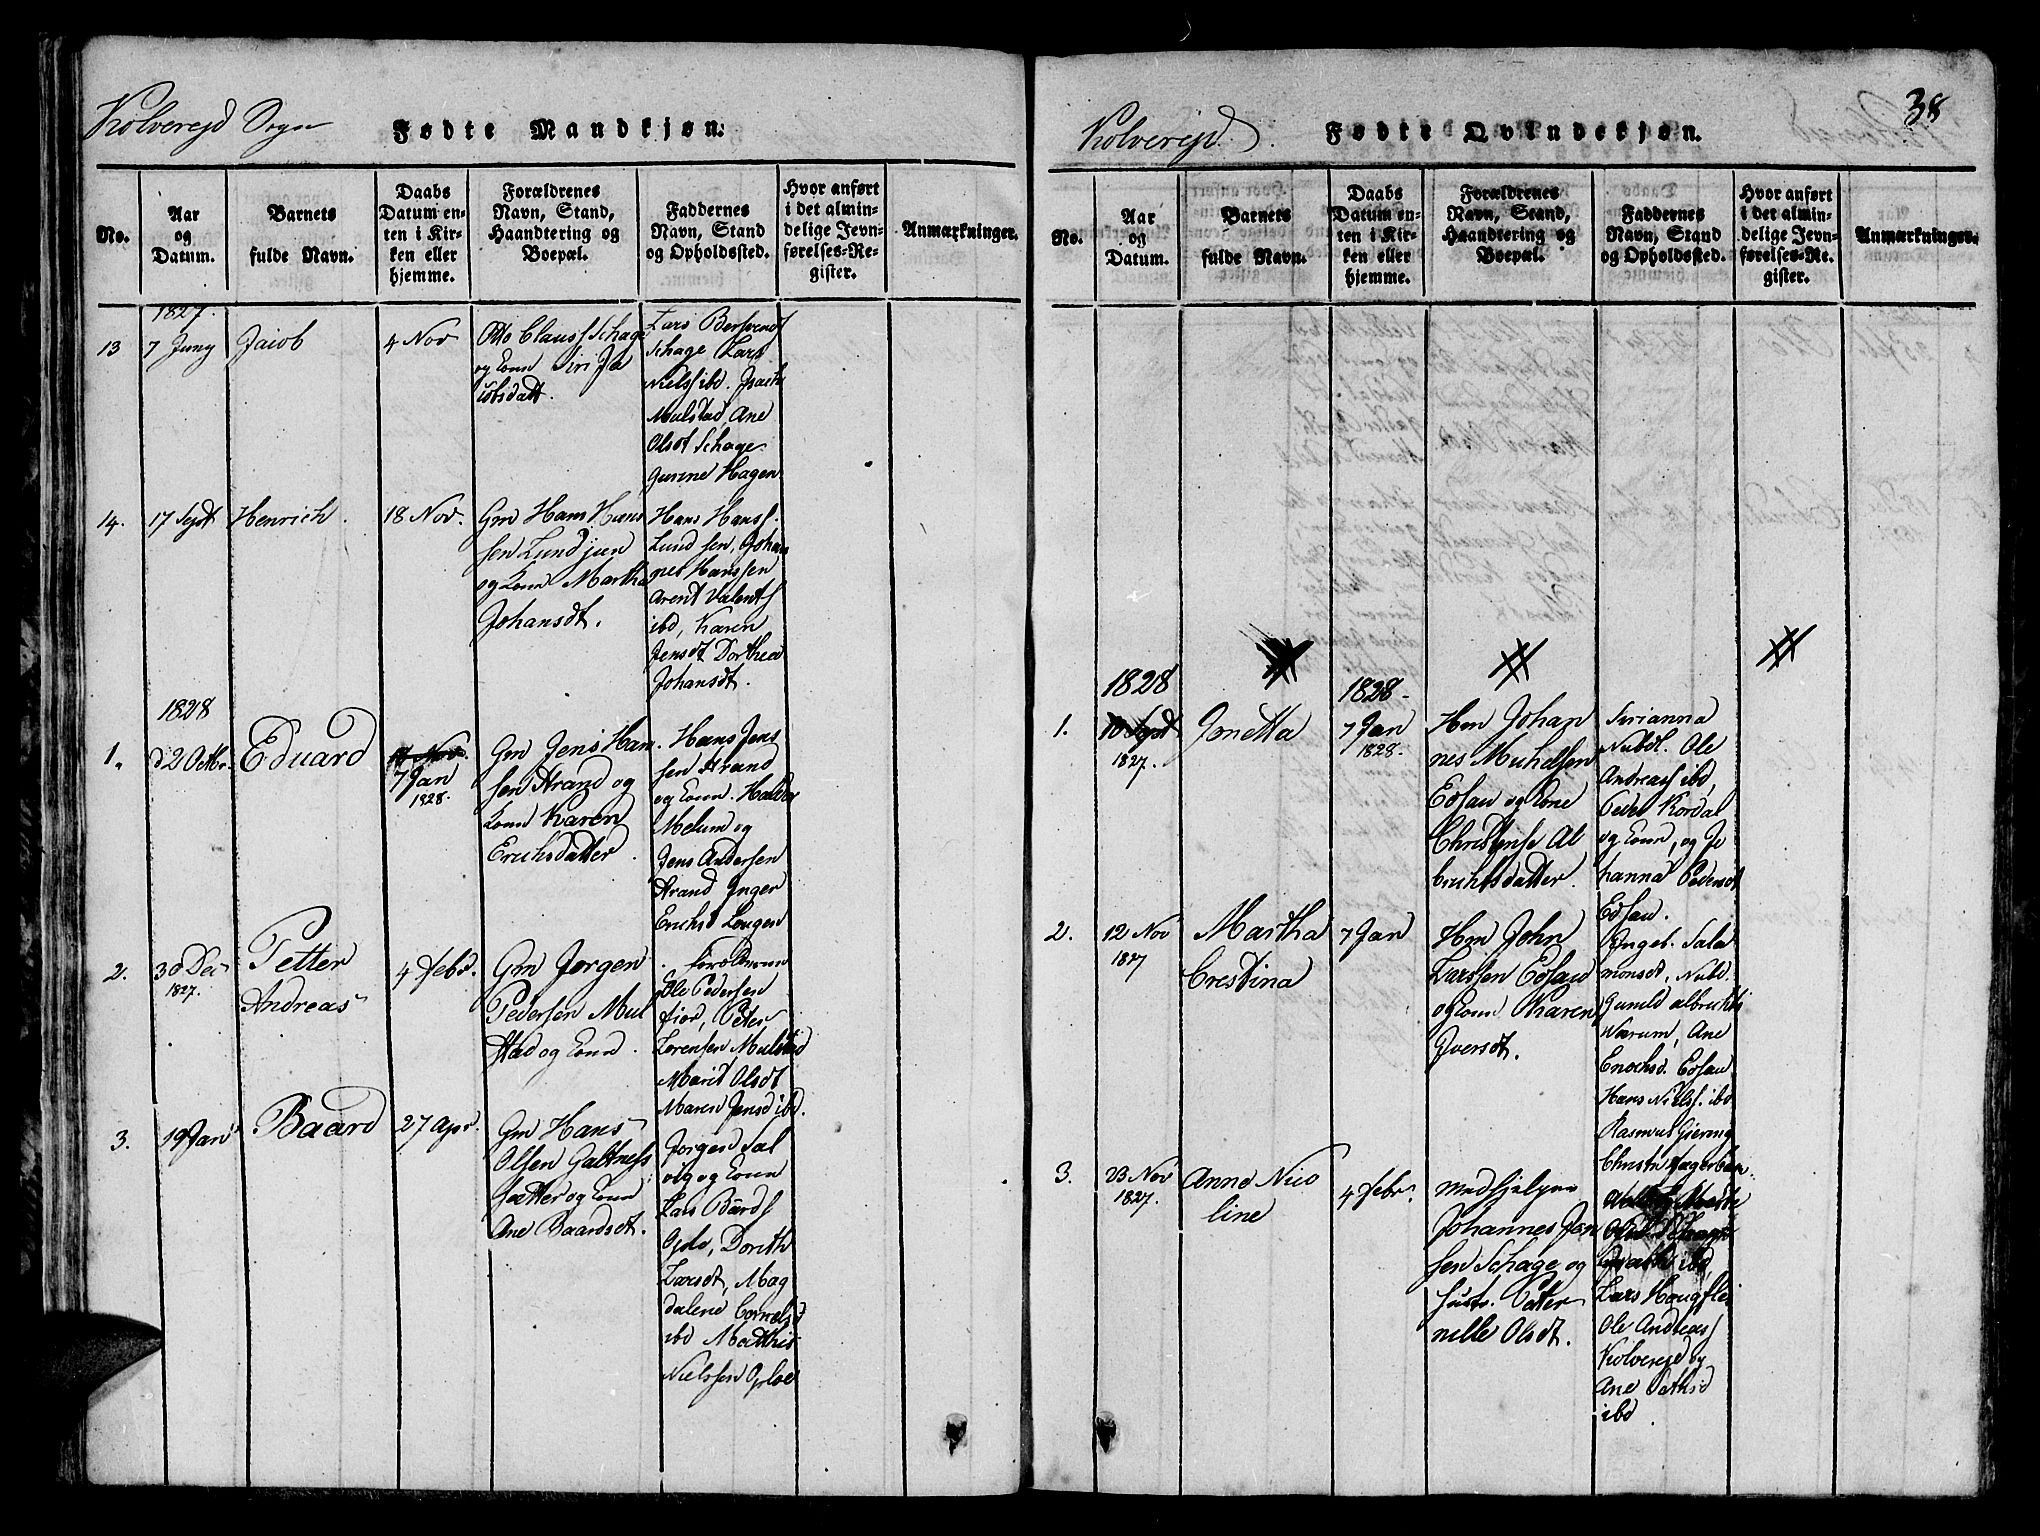 Kolverejd Sogn
Fødte Mandkjøn.
No.
Aar
og
Datum.
Barnets
fulde Navn.
Daabs
Datum en-
ten i Kir-
ken eller
hjemme.
Forældrenes
Navn, Stand,
Haandtering og
Boepæl.
Faddernes
Navn, Stand
og Opholdssted.
Hvor anført
i det almin-
delige Jevn-
førelses-Re-
gister.
Anmærkninger.
1827.
13
7 Juny
Jacob
4 Nov
Otto Clauss Schage
og Kone Siri Ja
cobsdatt.
Lars Bersvends
Schage Lars
Niels ibd.
Mulstad, Ane
Olsdt Schage
Hagen
14.
17 Sept
Henrich.
18 Nov.
Gm Hans Hans
sen Lund jun
og Kone Martha
Johansdt.
Hans Hanss.
Lund sen, Johan
nes Hanssen
Arent Valents
ibd, Karen
Jensdt Dorthea
Johansdt.
1828
1.
d 2 Octbr.
Eduard
7 Jan
1828.
Gm Jens Han
sen Strand og
Kone Karen
Erichsdatter.
Hans Jens
sen Strand
og Kone. Haldor
Melum og
Jens Andersen
Strand Inger
Erichsd Longen
2.
30 Dec
1827.
Petter
Andreas
4 Febr.
Gm Jørgen
Pedersen Mul
stad og Kone.
Forældrene
Ole Pedersen
fior, Peter
Lorensen Mulstad
Marit Olsdt
Maren Jensd ibd.
3.
19 Jan
Baard
27 Apr.
Gm Hans
Olsen Galtnes
sætter og Kone
Ane Baardsdt.
Jørgen Sal
vig og Kone
Lars Bards
Oplo, Dorith
Larsdt, Mag
dalene Cornelsd
ibd Mathis
Nielssen Oploe
38
Kolverejd.
Fødte Qvindekjøn.
No.
Aar
og
Datum.
Barnets
fulde Navn.
Daabs
Datum en-
ten i Kir-
ken eller
hjemme.
Forældrenes
Navn, Stand,
Haandtering og
Boepæl.
Faddernes
Navn, Stand
og Opholdssted.
Hvor anført
i det almin-
delige Jevn-
førelses-Re-
gister.
Anmærkninger.
1828
1828
1.
10 Sept
1827.
Jonetta
7 Jan
1828.
Hm Johan
nes Michelsen
Edsau og Kone
Christense Al
brichtsdatter.
Serianna
Nubdl. Ole
Andreass ibd,
Peder Kordal
og Kone, og Jo
hanna Pedersdt
Edsau.
2.
12 Nov
1827
Martha
Crestina
7 Jan
Hm John
Larssen Edsau
og Kone Karen
Iversdt.
Ingeb. Sala
monsdt, Nubd
Gunild albrichts
Værum, Ane
Enochsd. Edsau
Hans Nielss. ibd
Rasmus Giering
3.
23 Nov
1827.
Anne Nico
line
4 Febr.
Johannes Jen
sen Schage og
hustr. Peter
nelle Olsdt.
ibd
Lars Hougflei
Ole Andreass
Kolverejd og
Ane
ibd.